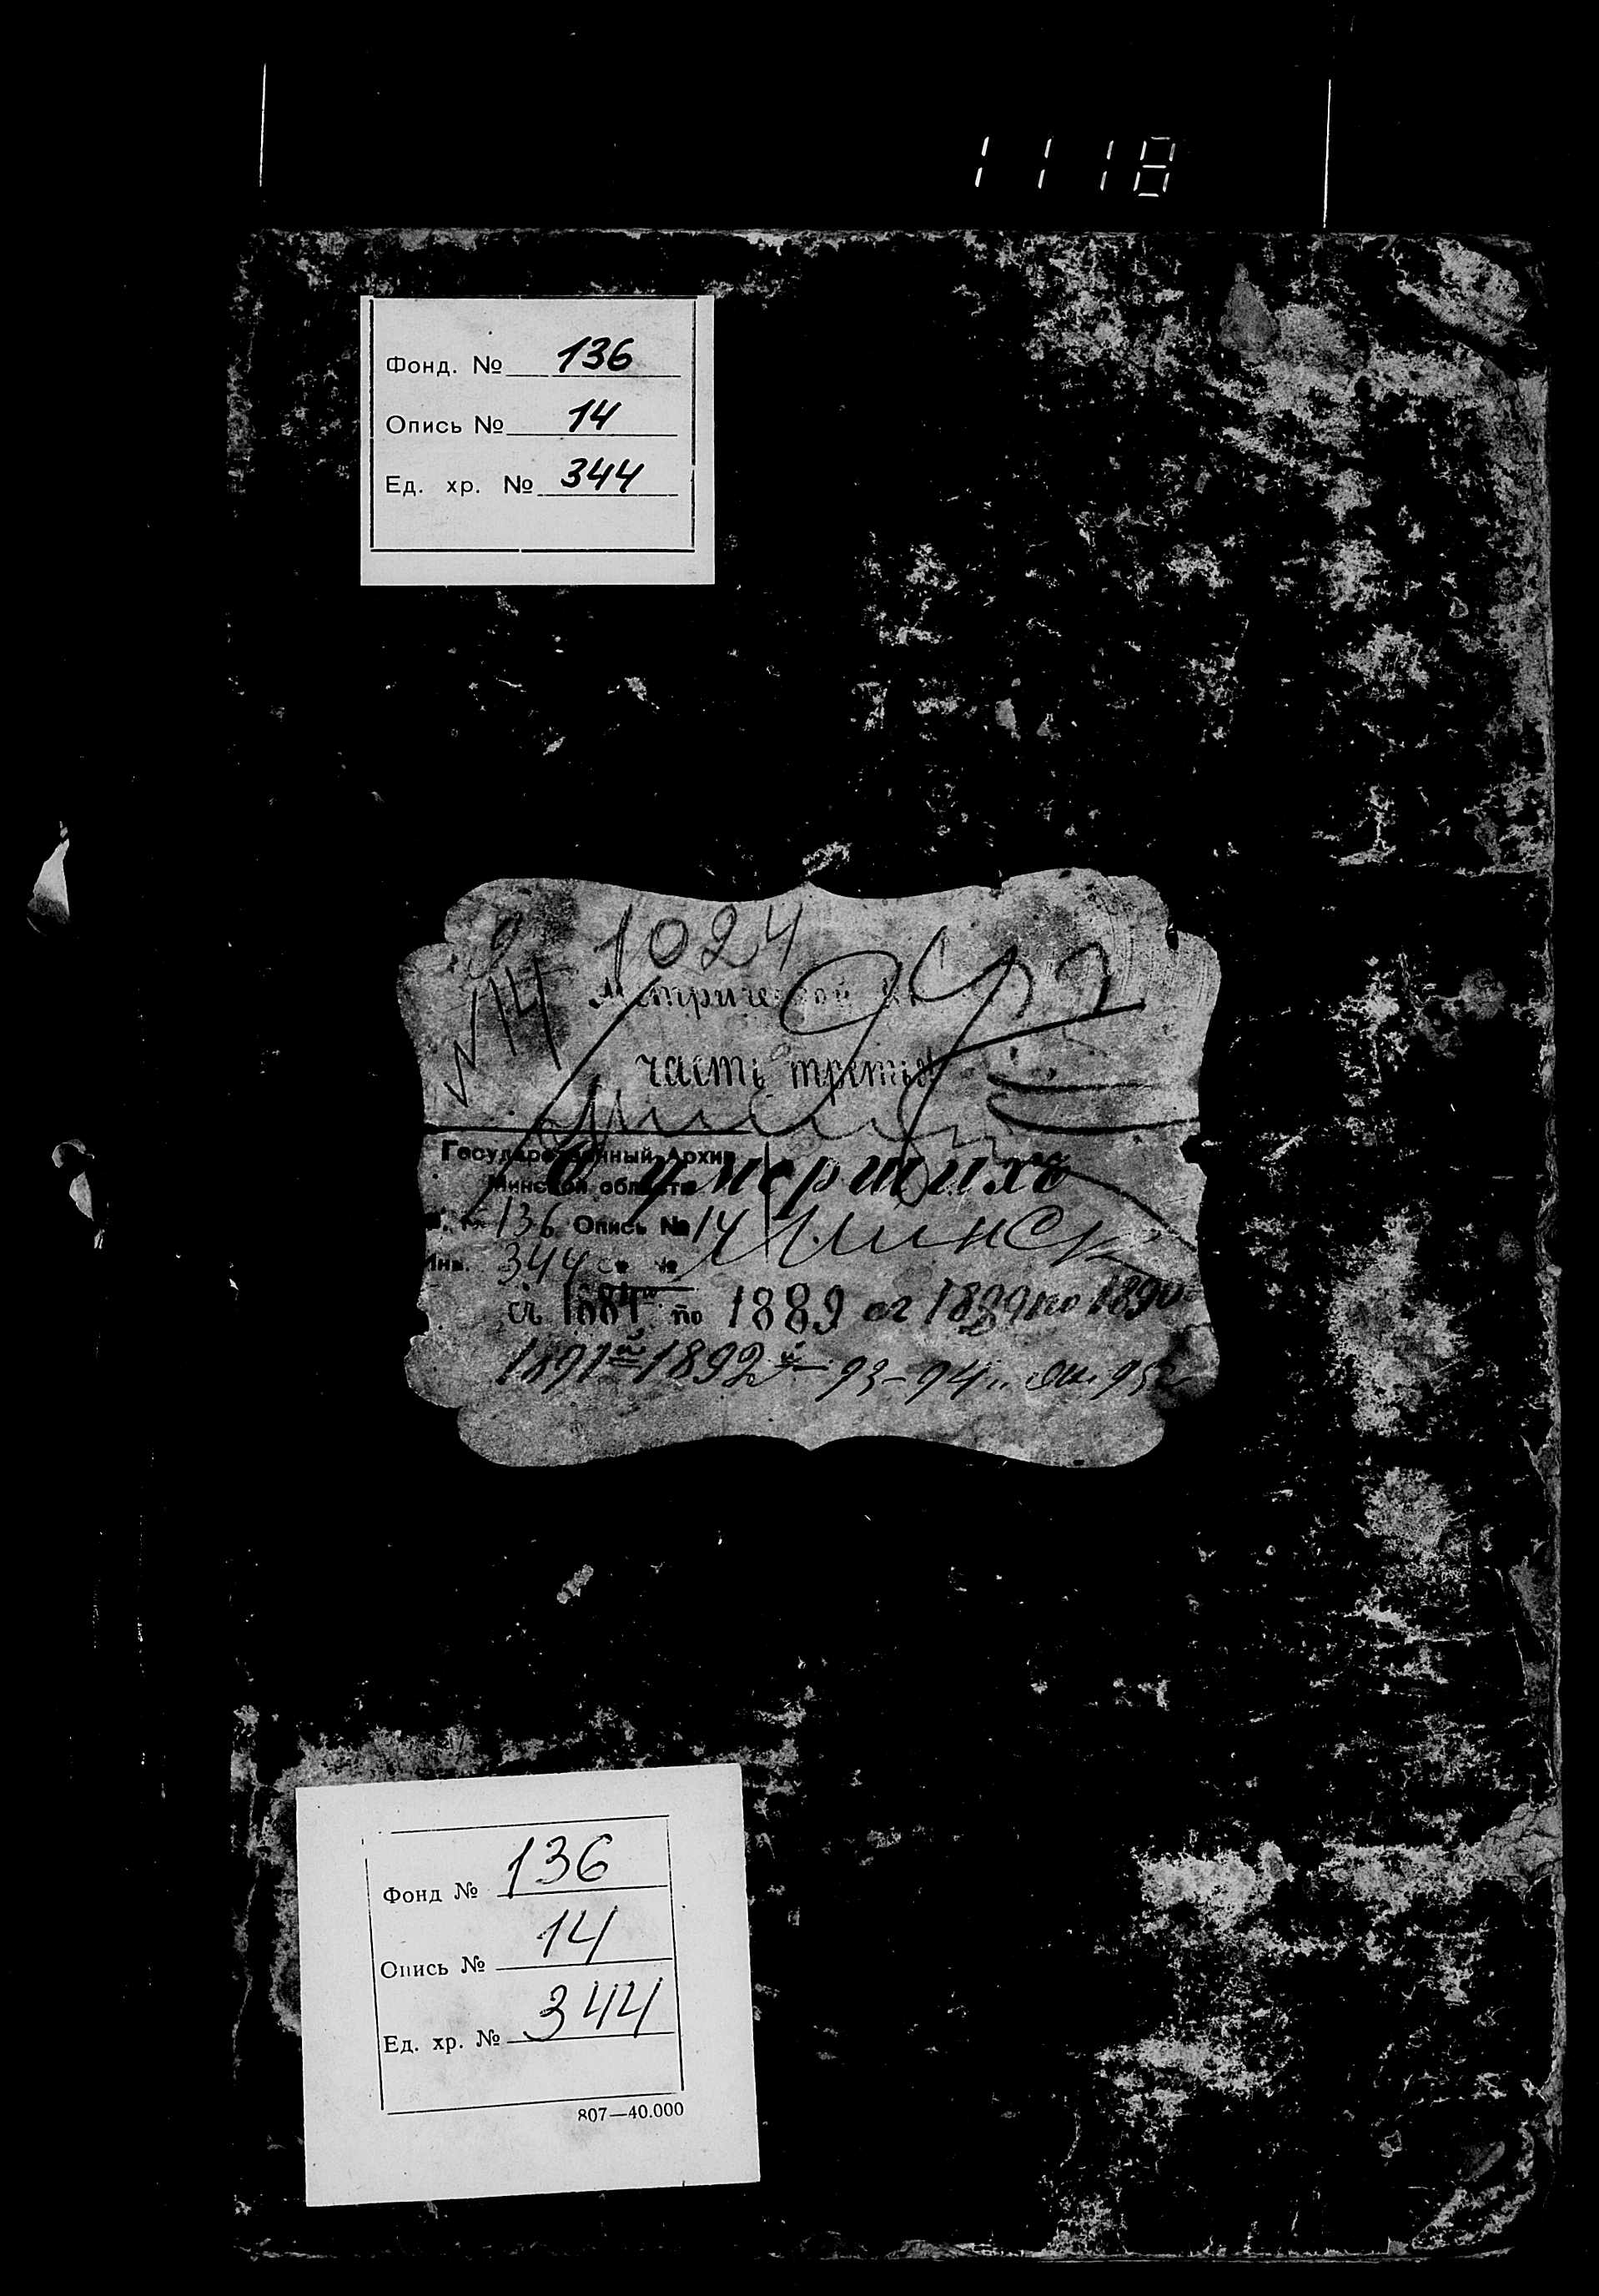 1118
Фонд. № 136
Опись № 14
Ед. хр. № 344
1024
№14
Метрической
часть третья
Государственный Архив
Минской области
О умерших
136 Опись № 14
Минск
Инв. 344 св. №
съ 1884 по 1889 ог 1889 по 1890
1891й 1892й 93-94 95
Фонд № 136
Опись № 14
Ед. хр. № 344
807—40.000